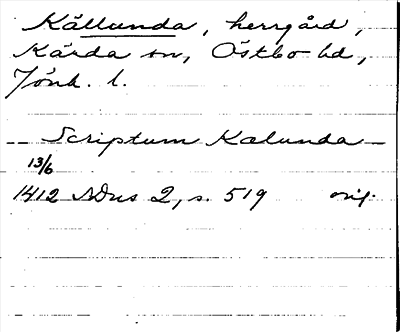 Källunda, herrgård,
Kärda sn, Östbo hd,
Jönk. l.
Scriptum Kalunda
13/6
1412 SDns 2, s. 519 orig.